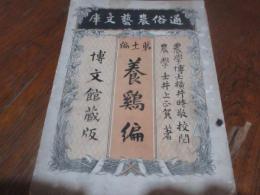 通俗農藝文庫
農學博士橫井時敬校閲
農學士井上正賀著
養鷄編
博文館藏版